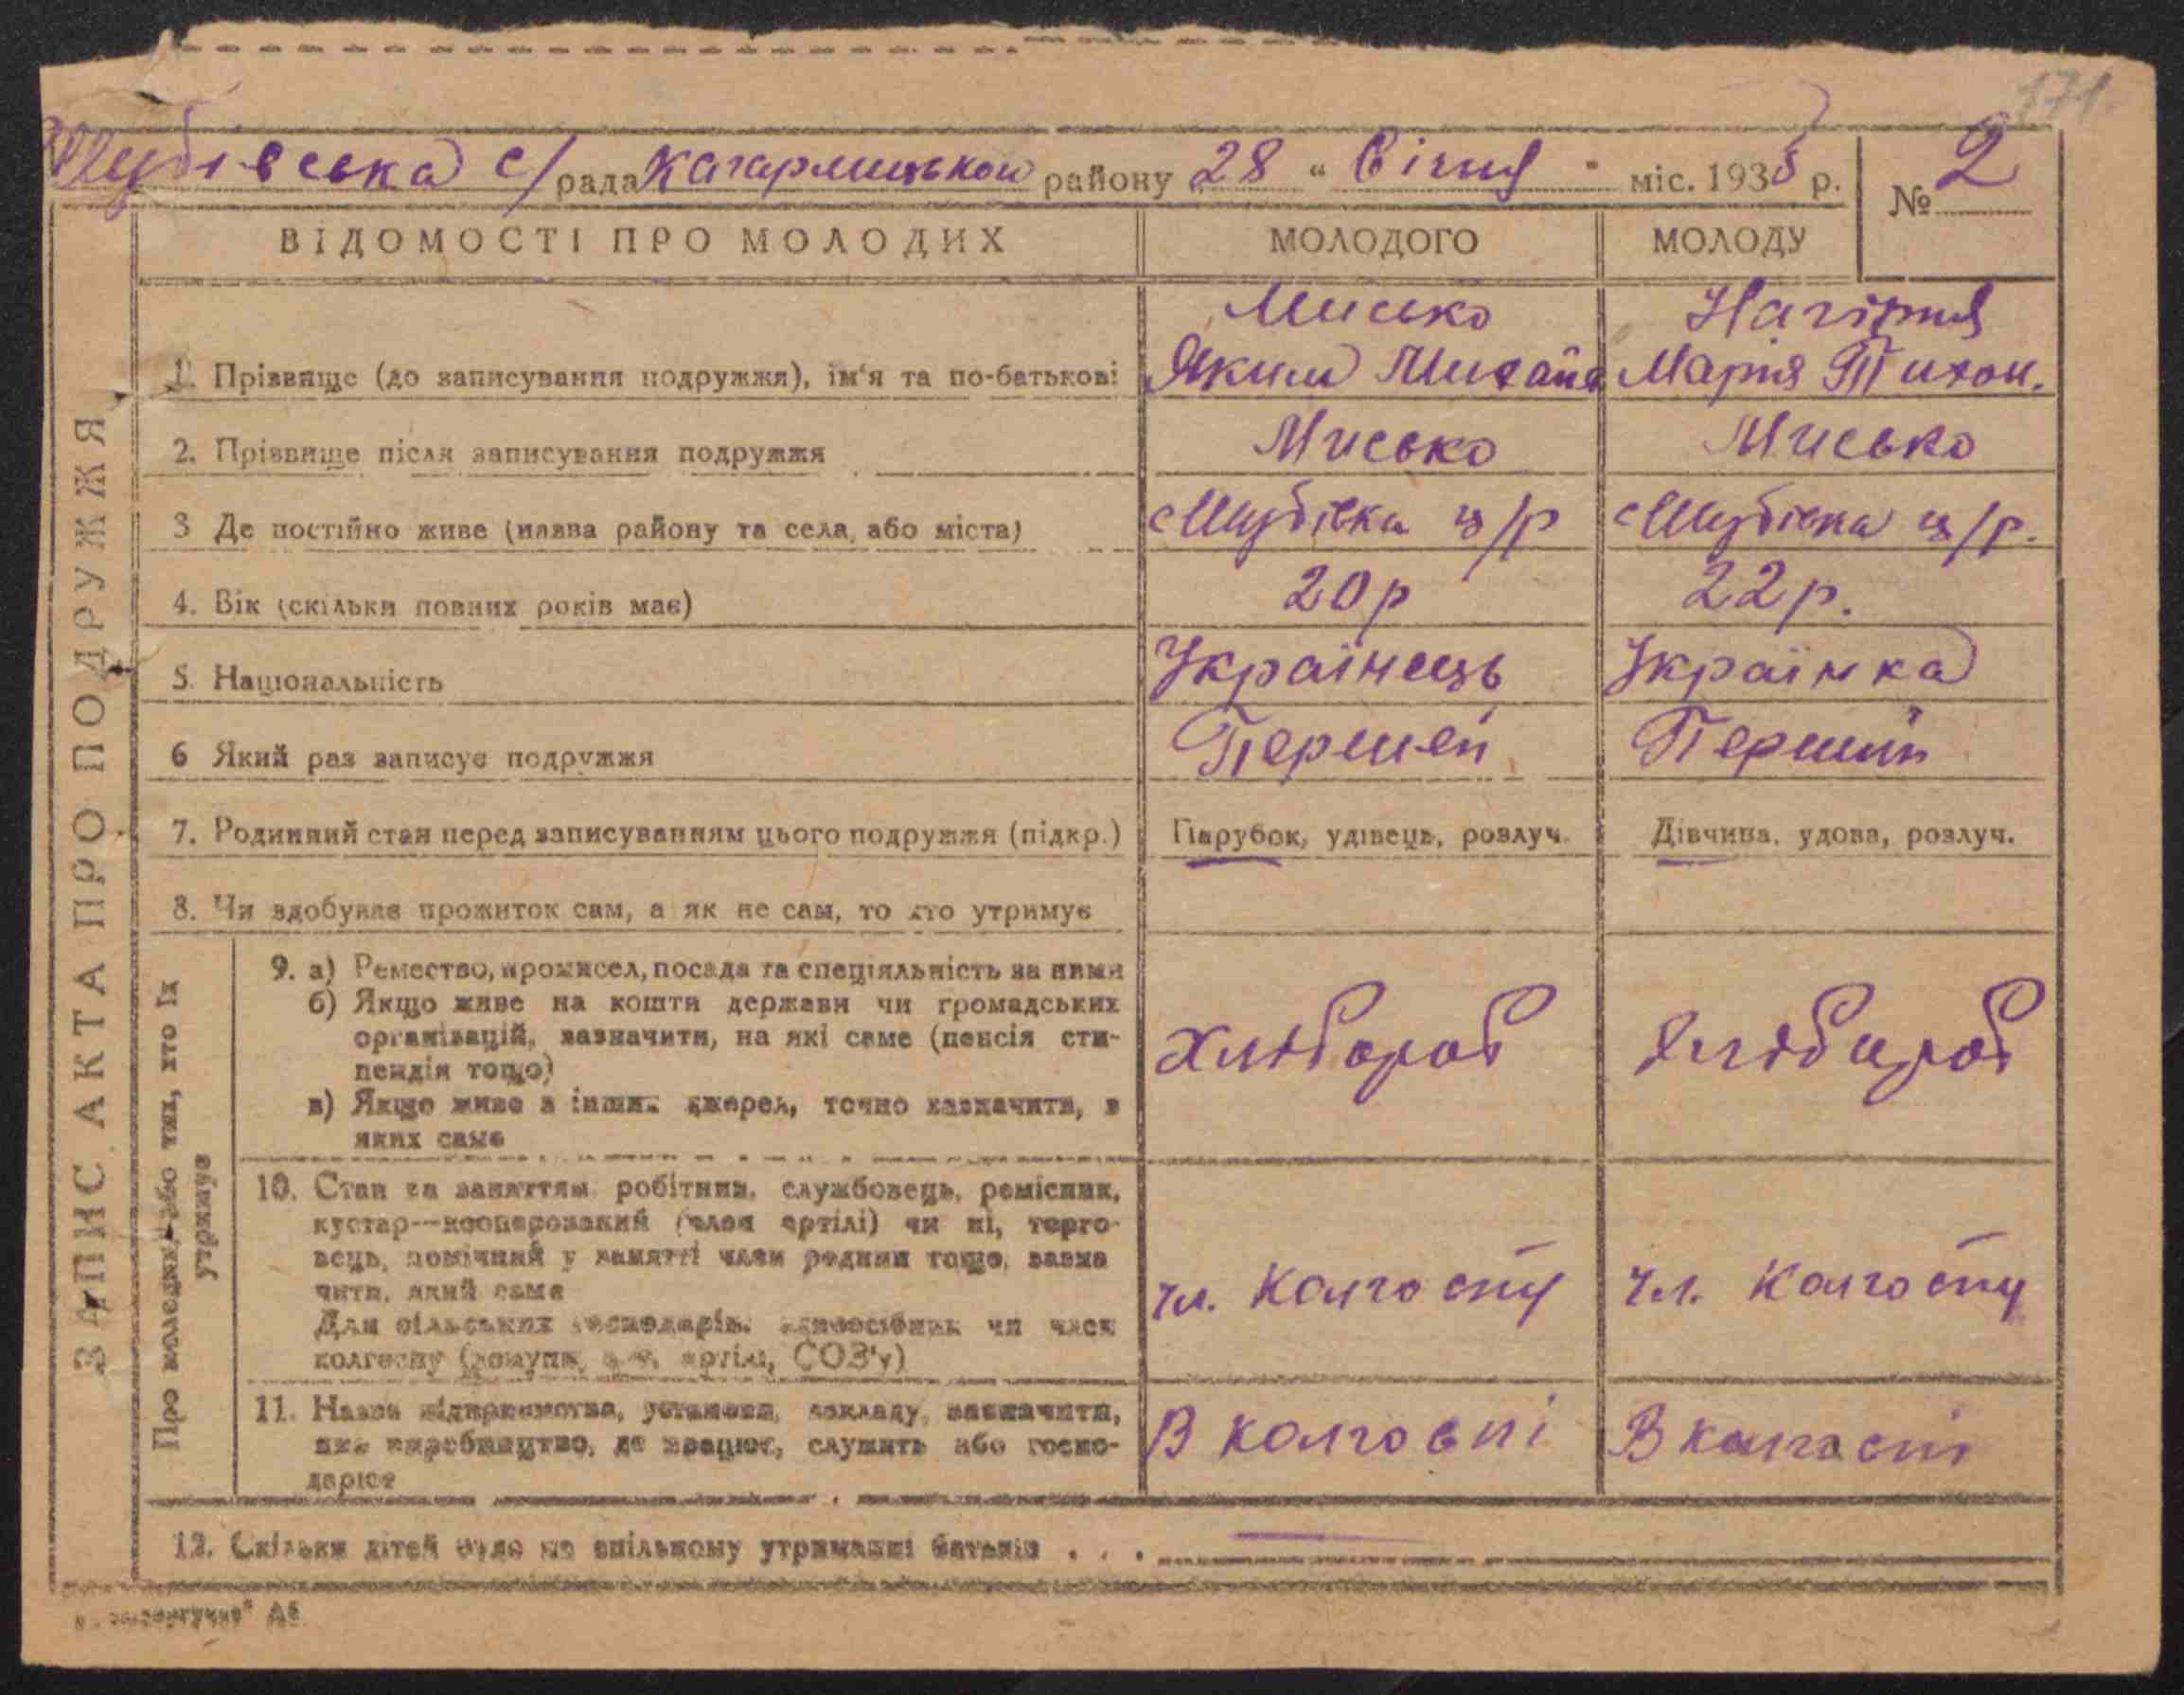 171.
Шубівська с/рада Кагарлицької району 28 " Січня " міс. 1935 р. № 2
ВІДОМОСТІ ПРО МОЛОДИХ МОЛОДОГО МОЛОДУ
ЗАПИС АКТА ПРО ПОДРУЖЖЯ
Мисько Нагірня
1. Прізвище (до записування подружжя), ім'я та по-батькові Яким Михайл Марія Тихон.
2. Прізвище після записування подружжя Мисько Мисько
3 Де постійно живе (назва району та села, або міста) с Шубівка ц/р с Шубівка ц/р.
4. Вік (скільки повних років має) 20р 22р.
5. Національність Українець Українка
6 Який раз записує подружжя Першей Перший
7. Родинний стан перед записуванням цього подружжя (підкр.) Парубок, удівець, розлуч. Дівчина, удова, розлуч.
8. Чи здобуває прожиток сам, а як не сам, то хто утримує
Про молодих або тих, хто їх
утримує
9. а) Ремество, промисел, посада та спеціяльність за ними
б) Якщо живе на кошти держави чи громадських
організацій, зазначити, на які саме (пенсія сти-
пендія тощо)
в) Якщо живе з інших джерел, точно зазначити, з
яких саме
Хлібороб Хлібороб
10. Стан за заняттям робітник, службовець, ремісник,
кустар--кооперований (член артілі) чи ні, торго-
вець, помічний у занятті член родини тощо, зазна
чити, який саме
Для сільських господарів: одноосібник чи член
колгоспу (комуни, артілі, СОЗ'у)
чл. Колгоспу чл. Колгоспу
11. Назва підприємства, установи, закладу, зазначити,
яке виробництво, де працює, служить або госпо-
дарює
В колгоспі В колгоспі
12. Скільки дітей буде на спільному утриманні батьків . . .